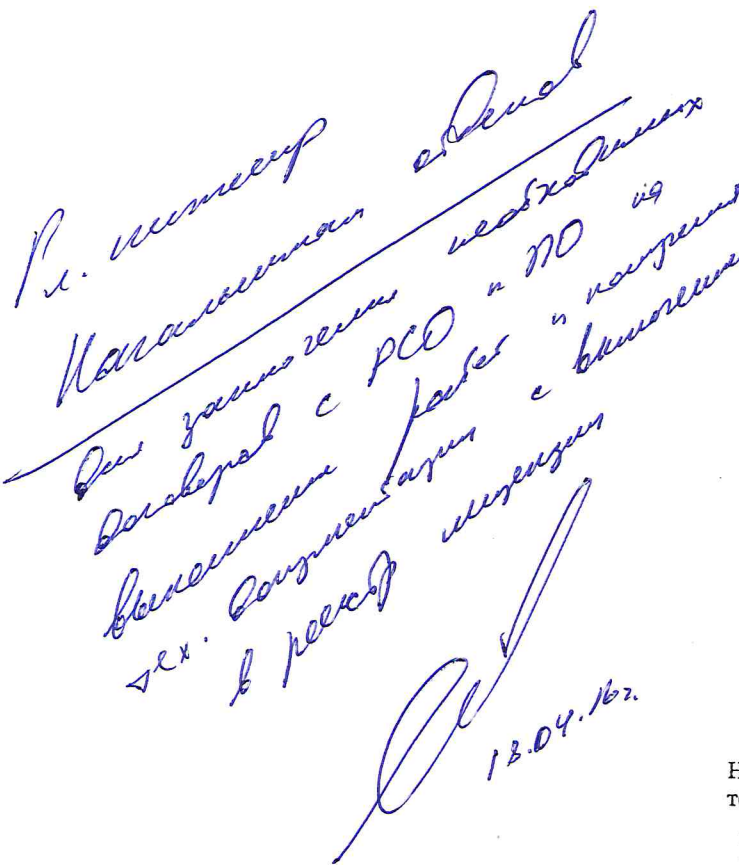 Гл. инженер
Начальникам отделов
Для заключения необходимых
договоров с РСО и ПО на
выполнение работ и получения
тех. документации с включением
в реестр лицензии
18.04.16г.
Н
т